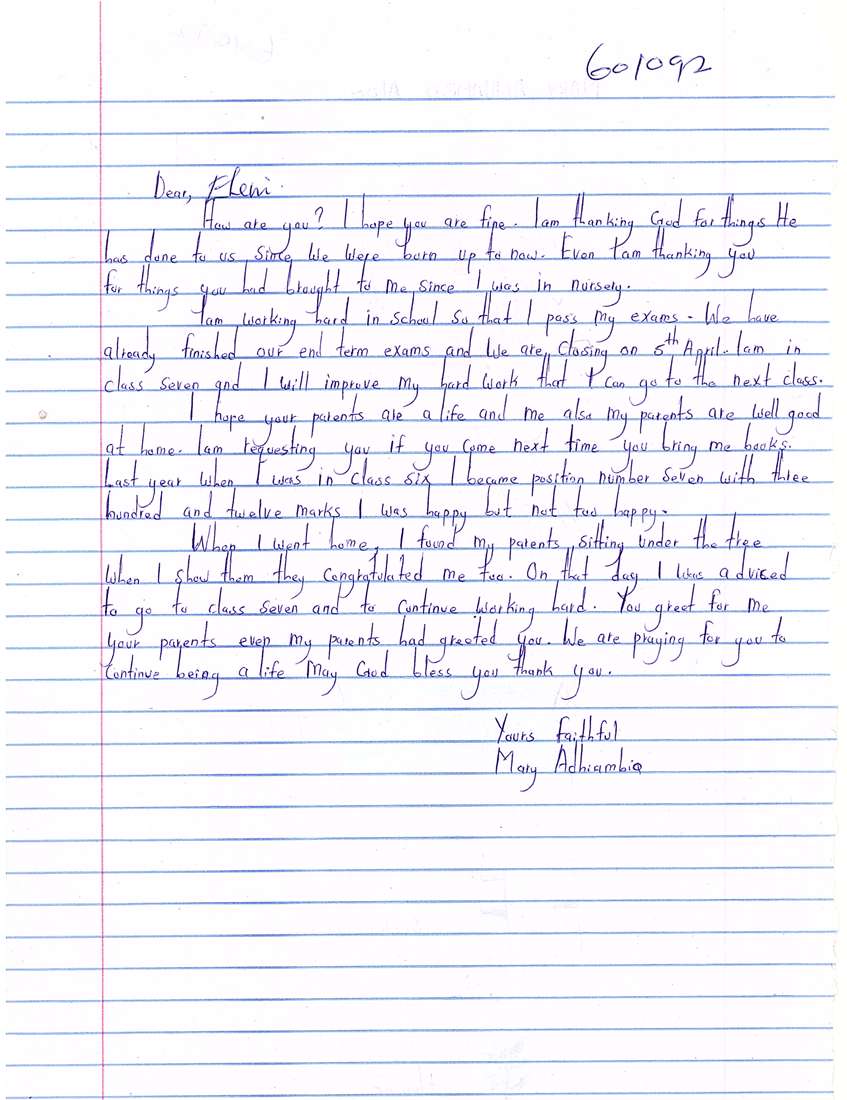 601092
Dear, Eleni.
How are you? I hope you are fine. Iam thanking God for things He
has done to us, Since We Were born up to now. Even Iam thanking you
for things you had brought to me since I was in nursely.
Iam working hard in school so that I pass my exams. We have
already finished our end term exams and We are, Closing on 5th April. Iam in
class seven and I will improve my hard work that I can go to the next class.
I hope your parents are a life and me also my parents are well good
at home. Iam requesting you if you come next time you bring me books.
Last year when I was in class six I became position number seven with three
hundred and twelve marks I was happy but not too happy.
When I went home, I found my parents, sitting under the tree
When I show them they congratulated me too. On that day I was adviced
to go to class seven and to continue working hard. You greet for me
your parents even my parents had greeted you. We are praying for you to
continue being a life May God bless you thank you.
Yours faithful
Mary Adhiambio